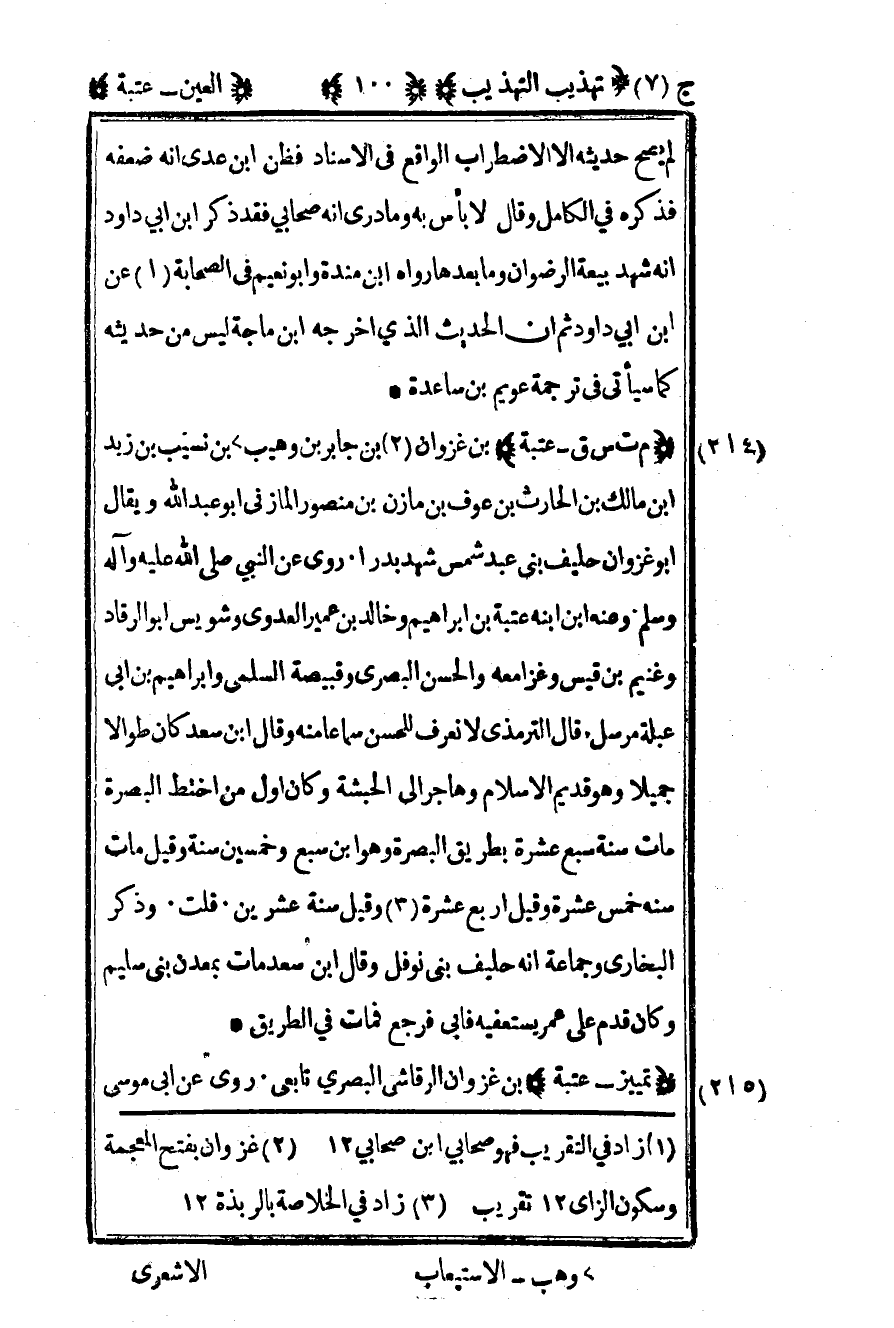 ج (٧) ﴿ تهذيب التهذيب ﴾ ﴿ ١٠٠ ﴾ ﴿ العين ـ عتبة ﴾
لم يصح حديثه الا الاضطراب الواقع فى الاسناد فظن ابن عدى انه ضعفه
فذكره في الكامل وقال لا بأس به وما درى انه صحابي فقد ذكر ابن ابي داود
انه شهد بيعة الرضوان وما بعدها رواه ابن مندة وابو نعيم فى الصحابة (١) عن
ابن ابي داود ثم ان الحديث الذي اخرجه ابن ماجة ليس من حديثه
كما سيأتى فى ترجمة عويم بن ساعدة •
(٢١٤) ﴿ م ت س ق ـ عتبة ﴾ بن غزوان (٢) بن جابر بن وهيب > بن نسيب بن زيد
ابن مالك بن الحارث بن عوف بن مازن بن منصور المازنى ابو عبد الله ويقال
ابو غزوان حليف بنى عبد شمس شهد بدرا ٠ روى عن النبي صلى الله عليه وآله
وسلم ٠ وعنه ابن ابنه عتبة بن ابراهيم وخالد بن عمير العدوى وشويس ابو الرقاد
وغنيم بن قيس وغزا معه والحسن البصرى وقبيصة السلمى وابراهيم بن ابى
عبلة مرسل ٠ قال الترمذى لا نعرف للحسن سماعا منه وقال ابن سعد كان طوالا
جميلا وهو قديم الاسلام وهاجر الى الحبشة وكان اول من اختط البصرة
مات سنة سبع عشرة بطريق البصرة وهو ابن سبع وخمسين سنة وقيل مات
سنه خمس عشرة وقيل اربع عشرة (٣) وقيل سنة عشرين ٠ قلت ٠ وذكر
البخارى وجماعة انه حليف بنى نوفل وقال ابن سعد مات بمعدن بنى سليم
وكان قدم على عمر يستعفيه فابى فرجع فمات في الطريق •
(٢١٥) ﴿ تمييز ـ عتبة ﴾ بن غزوان الرقاشى البصري تابعى ٠ روى عن ابى موسى
(١) زاد في التقريب فهو صحابي ابن صحابي ١٢ (٢) غزوان بفتح المعجمة
وسكون الزاى ١٢ تقريب (٣) زاد في الخلاصة بالربذة ١٢
> وهب ـ الاستيعاب الاشعرى